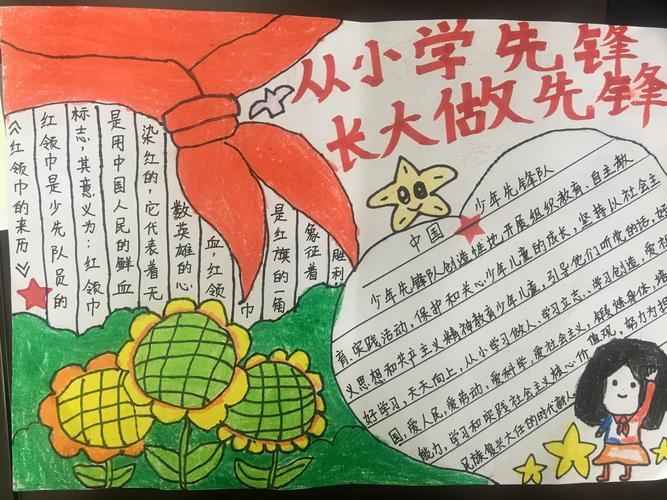 从小学先锋
长大做先锋
《红领巾的来历》
红领巾是少先队员的
标志,其意义为:红领巾
是用中国人民的鲜血
染红的,它代表着无
数英雄的心
血,红领
巾
是红旗的一角
象征着
胜利
中国少年先锋队
少年先锋队创造性地开展组织教育、自主教
育、实践活动,保护和关心少年儿童的成长,坚持以社会主
义思想和共产主义精神教育少年儿童,引导他们听党的话,
好学习,天天向上,从小学习做人、学习立志、学习创造,爱
国,爱人民,爱劳动,爱科学,爱社会主义,锻炼身体,
能力,学习和实践社会主义核心价值观,努力为
民族复兴大任的时代新人